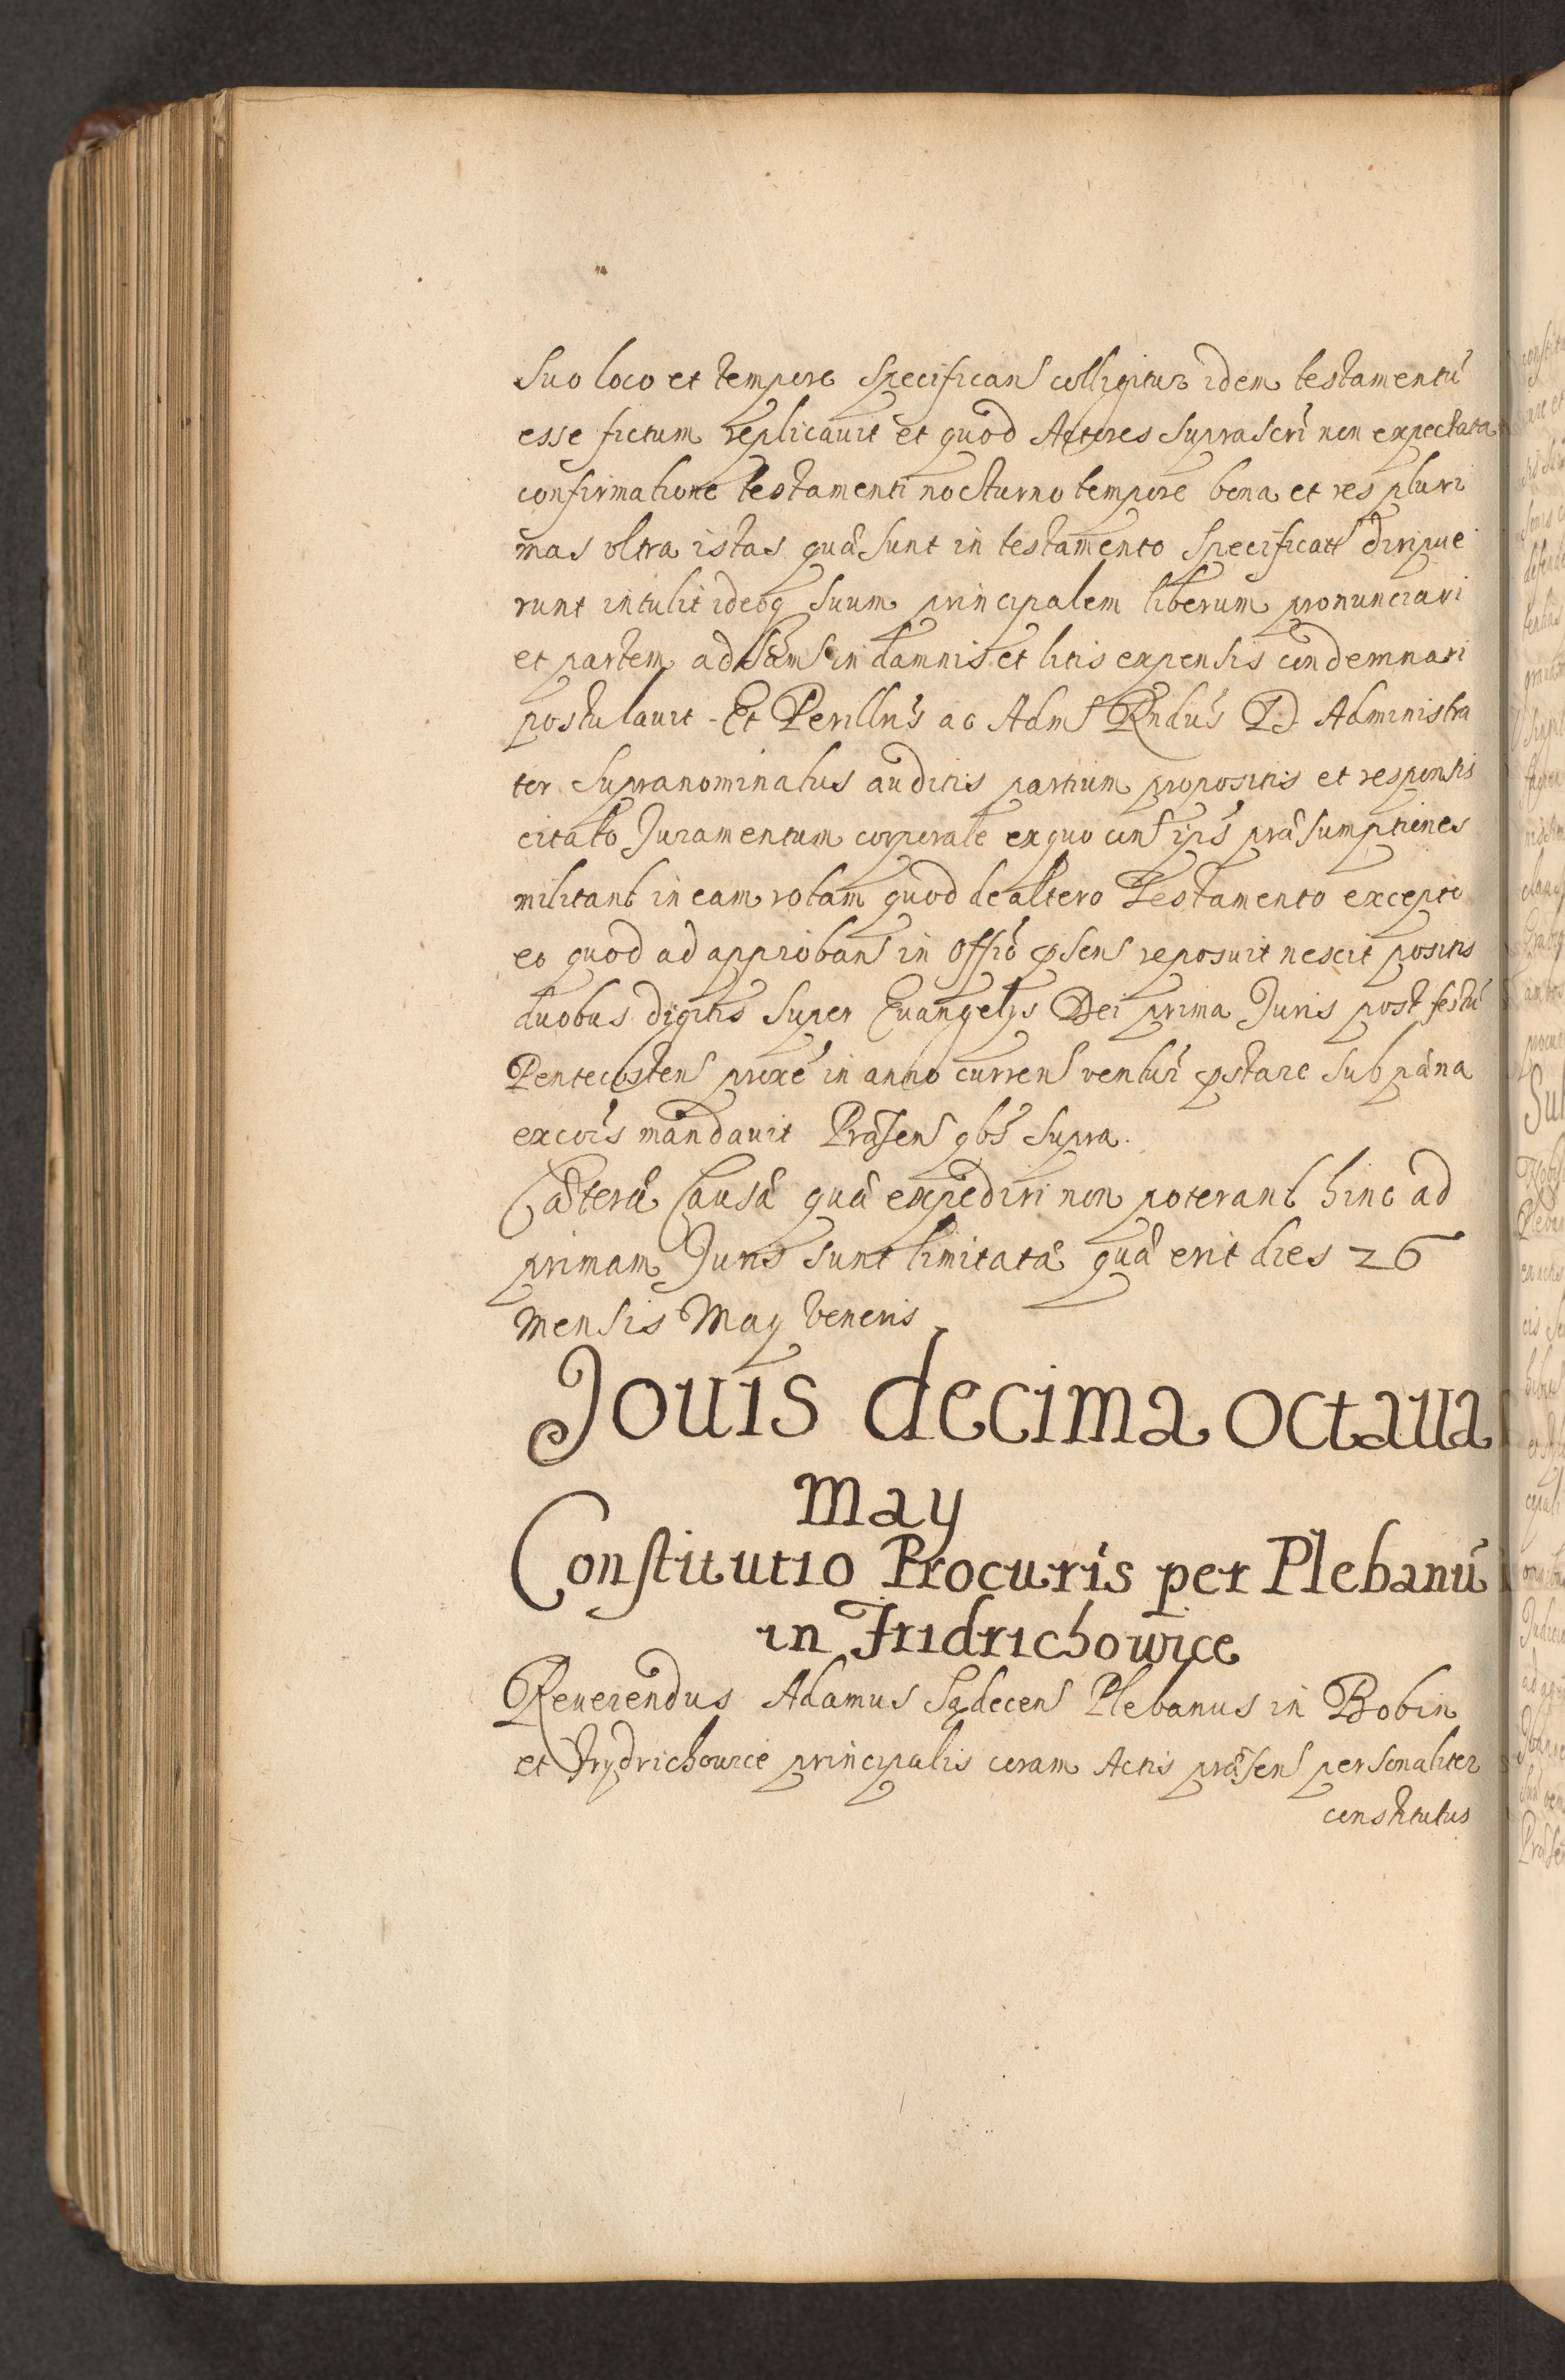 Suo loco et tempore Specifican colligitur idem testamentū
esse fictum replicauit et quod Actores Suprascri non expectata
confirmatione testamenti nocturno tempore bona et res pluri
mas vltra istas quæ Sunt in testamento Specificat diripue
runt intulit ideoq Suum principalem liberum pronunciari
et partem in damnis et litis expensis condemnari
postulauit - Et Perillris ac Adm Rndus D. Administra
tor Supranominatus auditis partium propositis et responsis
citato Juramentum corporale ex quo con ips præsumptiones
militant in eam rotam quod de altero Testamento excepto
eo quod ad approban in Offio psens reposuit nescit positis
duobus digitis Super Euangelys Dei prima Juris post festū
Pentecosten proxe in anno curren ventur pstare Sub pæna
excois mandauit Præsen qbs Supra.
Cæteræ Causæ quæ expediri non poterant hinc ad
primam Juris Sunt limitatæ quæ erit dies 26
mensis May Veneris
Jouis decima octaua
may
Constitutio Procuris per Plebanū
in Fridrichowice
Reuerendus Adamus Sądecen Plebanus in Bobin
et Frydrichowice principalis coram Actis præsen personaliter
constitutus